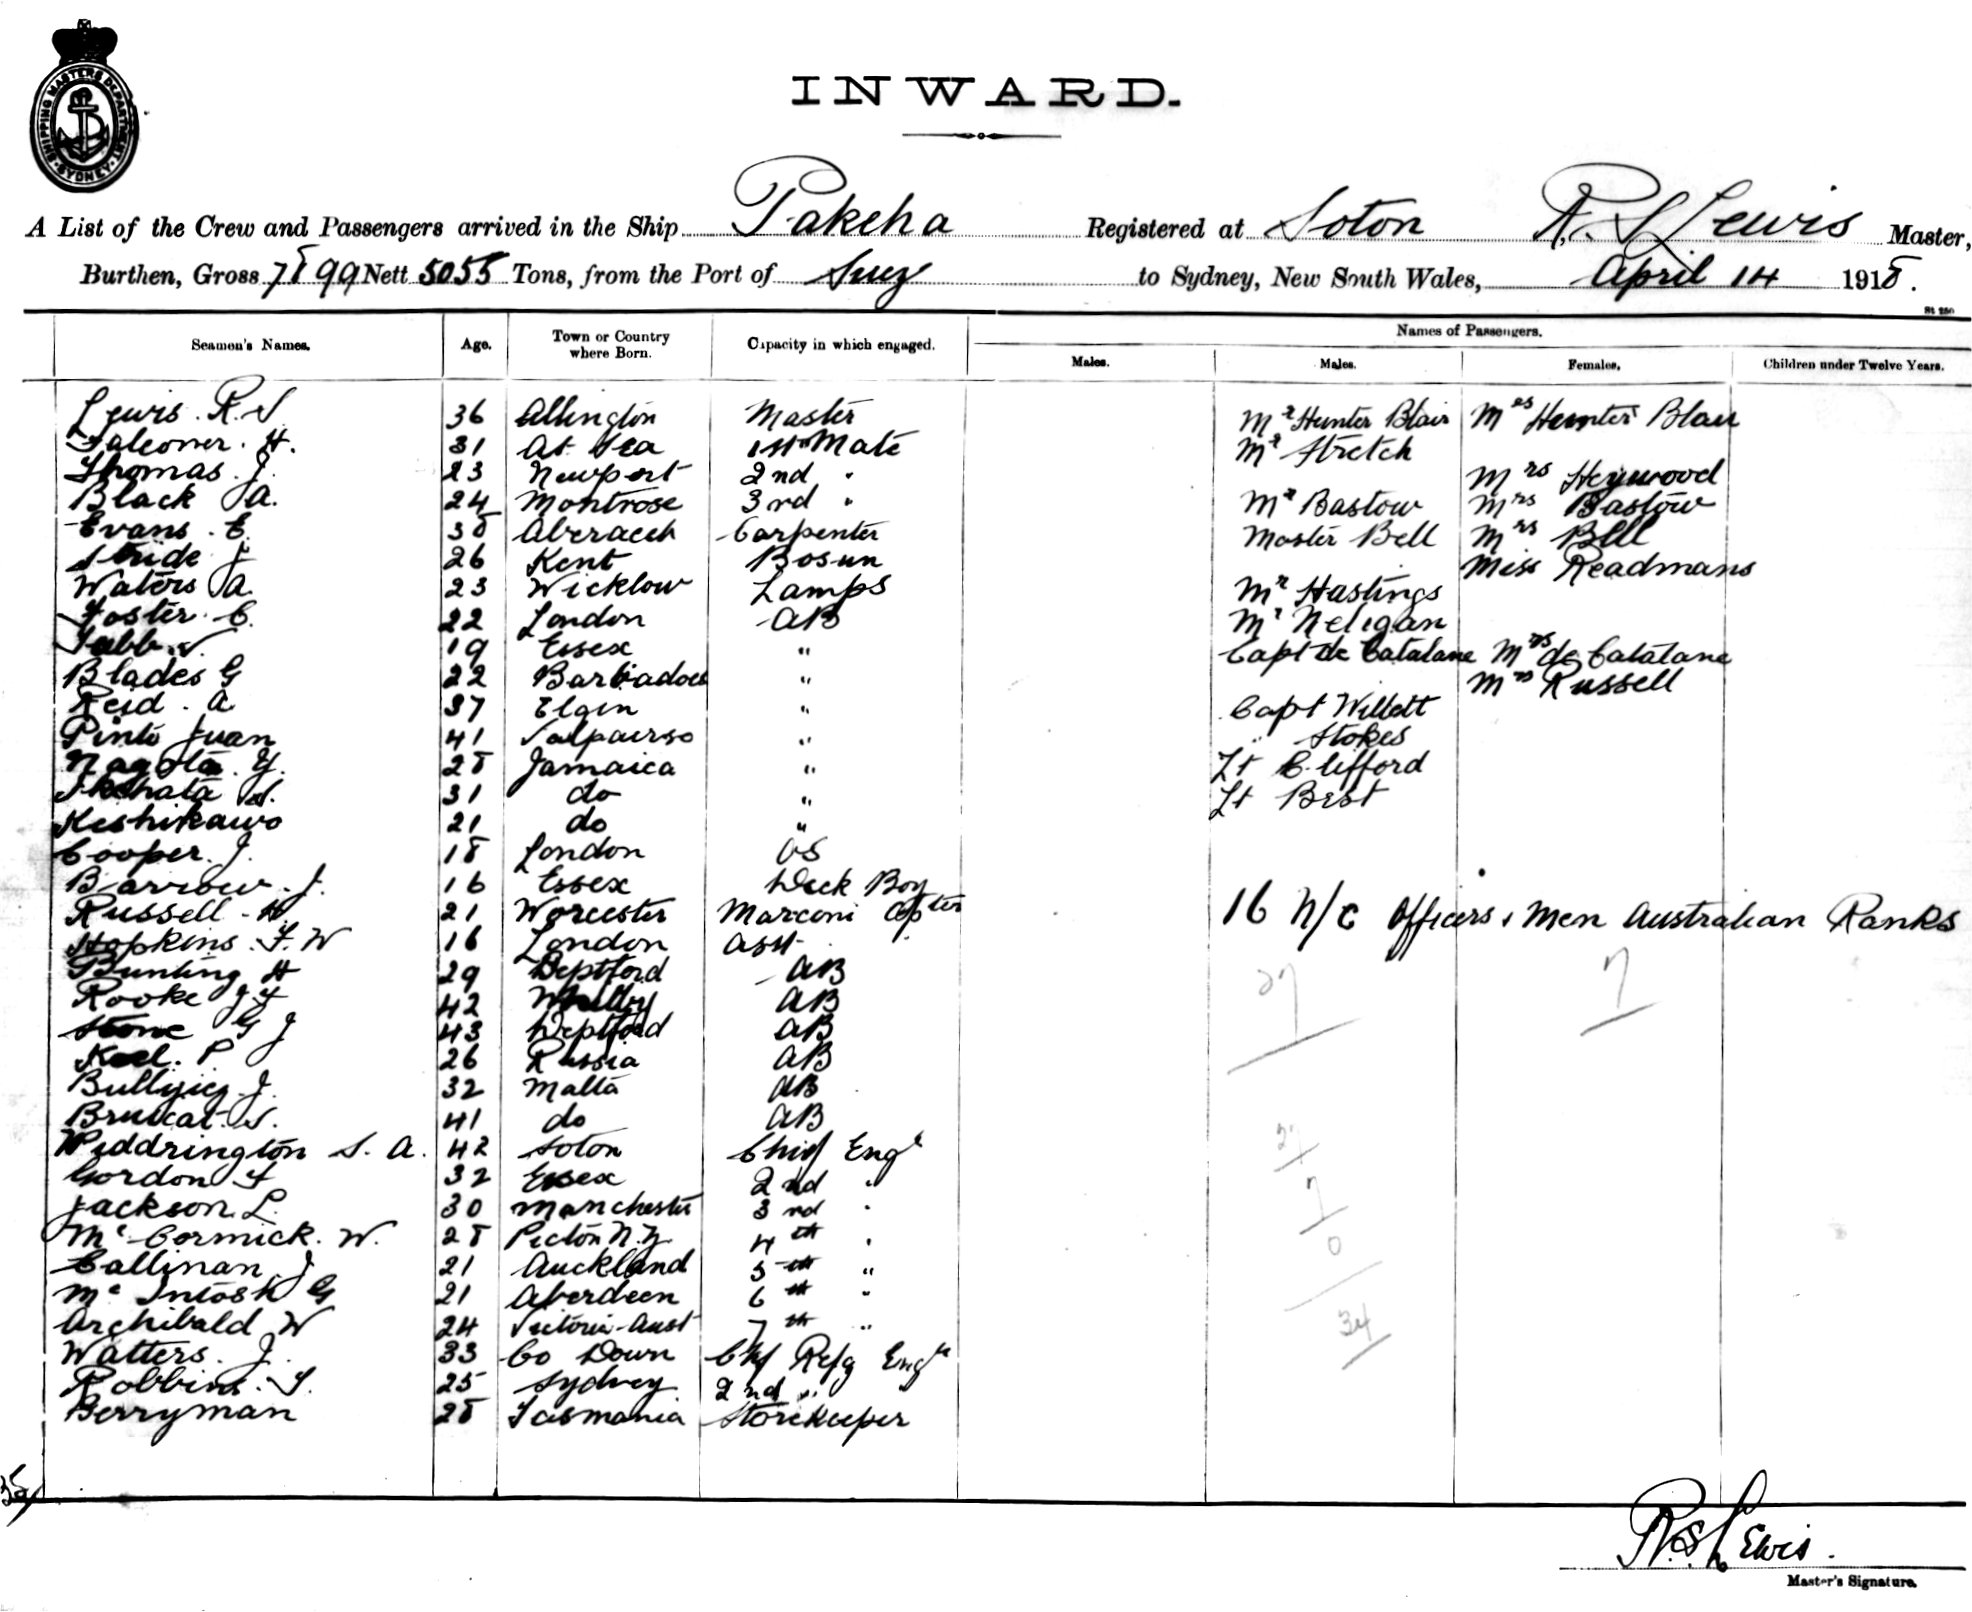 SHIPPING MASTERS DEPARTMENT
SYDNEY
INWARD.
A List of the Crew and Passengers arrived in the Ship Pakeha Registered at Soton R. S Lewis Master,
Burthen, Gross 7899 Nett 5055 Tons, from the Port of Suez to Sydney, New South Wales, April 14 1918.
St 250
Seamen's Names. Age. Town or Country where Born. Capacity in which engaged. Names of Passengers.
Males. Males. Females. Children under Twelve Years.
Lewis. R. S. 36 Allington Master Mr Hunter Blair Mrs Hunter Blair
Falconer. H. 31 At Sea 1st Mate Mr Stretch
Thomas. J. 23 Newport 2nd " Mrs Heywood
Black A. 24 Montrose 3rd " Mr Bastow Mrs Bastow
Evans. E. 38 Carpenter Master Bell Mrs Bell
Stride J 26 Kent Bosun Miss Readmans
Waters A. 23 Wicklow Lamps Mr Hastings
Foster C. 22 London AB Mr Neligan
19 Essex " Capt de Catalane Mrs de Catalane
Blades G 22 Barbadoes " Mrs Russell
Reid. A 37 Elgin " Capt Willett
Pinto Juan 41 Valpairso " " Stokes
28 Jamaica " Lt Clifford
31 do " Lt Best
Keshikawo 21 do "
Cooper. J. 18 London OS
Barrow. J. 16 Essex Deck Boy
Russell - H. 21 Worcester Marconi Opter 16 N/C Officers & Men Australian Ranks
Hopkins. F. W 16 London Asst
Bunting H 29 Deptford AB 27 7
Rooke J. F 42 Whitby AB
Stone G J 43 Deptford AB
P 26 Russia AB
J. 32 Malta AB
41 do AB
Widdrington S. A. 42 Soton Chief Engr 27
Gordon F 32 Essex 2nd " 7
Jackson L. 30 Manchester 3rd "
McCormick. W. 28 Picton N.Z. 4th " 0
Callinan. J 21 Auckland 5th "
McIntosh G 21 Aberdeen 6th "
Archibald W 24 Victoria Aust 7th " 34
Watters. J. 33 Co Down Chf Refg Engr
Robbins. 25 Sydney 2nd "
Berryman 28 Tasmania Storekeeper
35
R. S. Lewis.
Master's Signature.